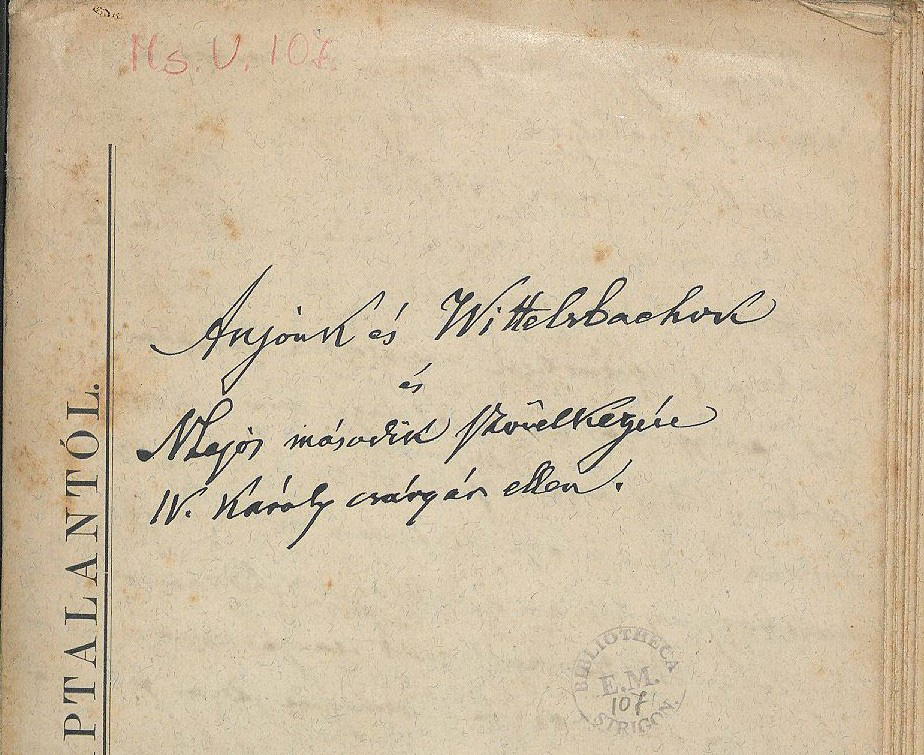 Ms. V. 107.
PTALANTÓL.
Anjouk és Wittelsbachok
és
N Lajos második szövetkezése
IV. Károly császár ellen.
BIBLIOTHECA
E.M.
107
STRIGON.